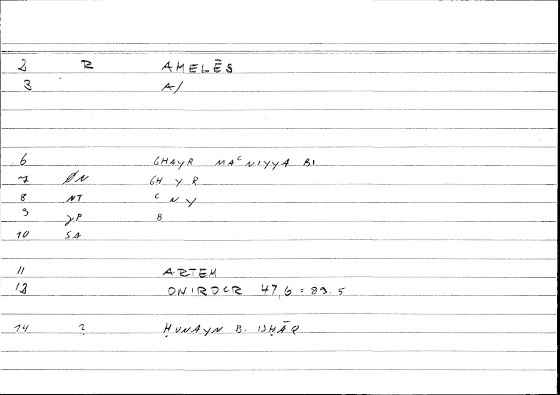 2 R AMELĒS
3 A/
6 GHAYR MAᶜNIYYA BI
7 ØN GH Y R
8 NT ᶜ N Y
9 γP B
10 SA
11 ARTEM
12 ONIROCR 47,6 = 89.5
14 ? ḤUNAYN B. ISḤĀQ